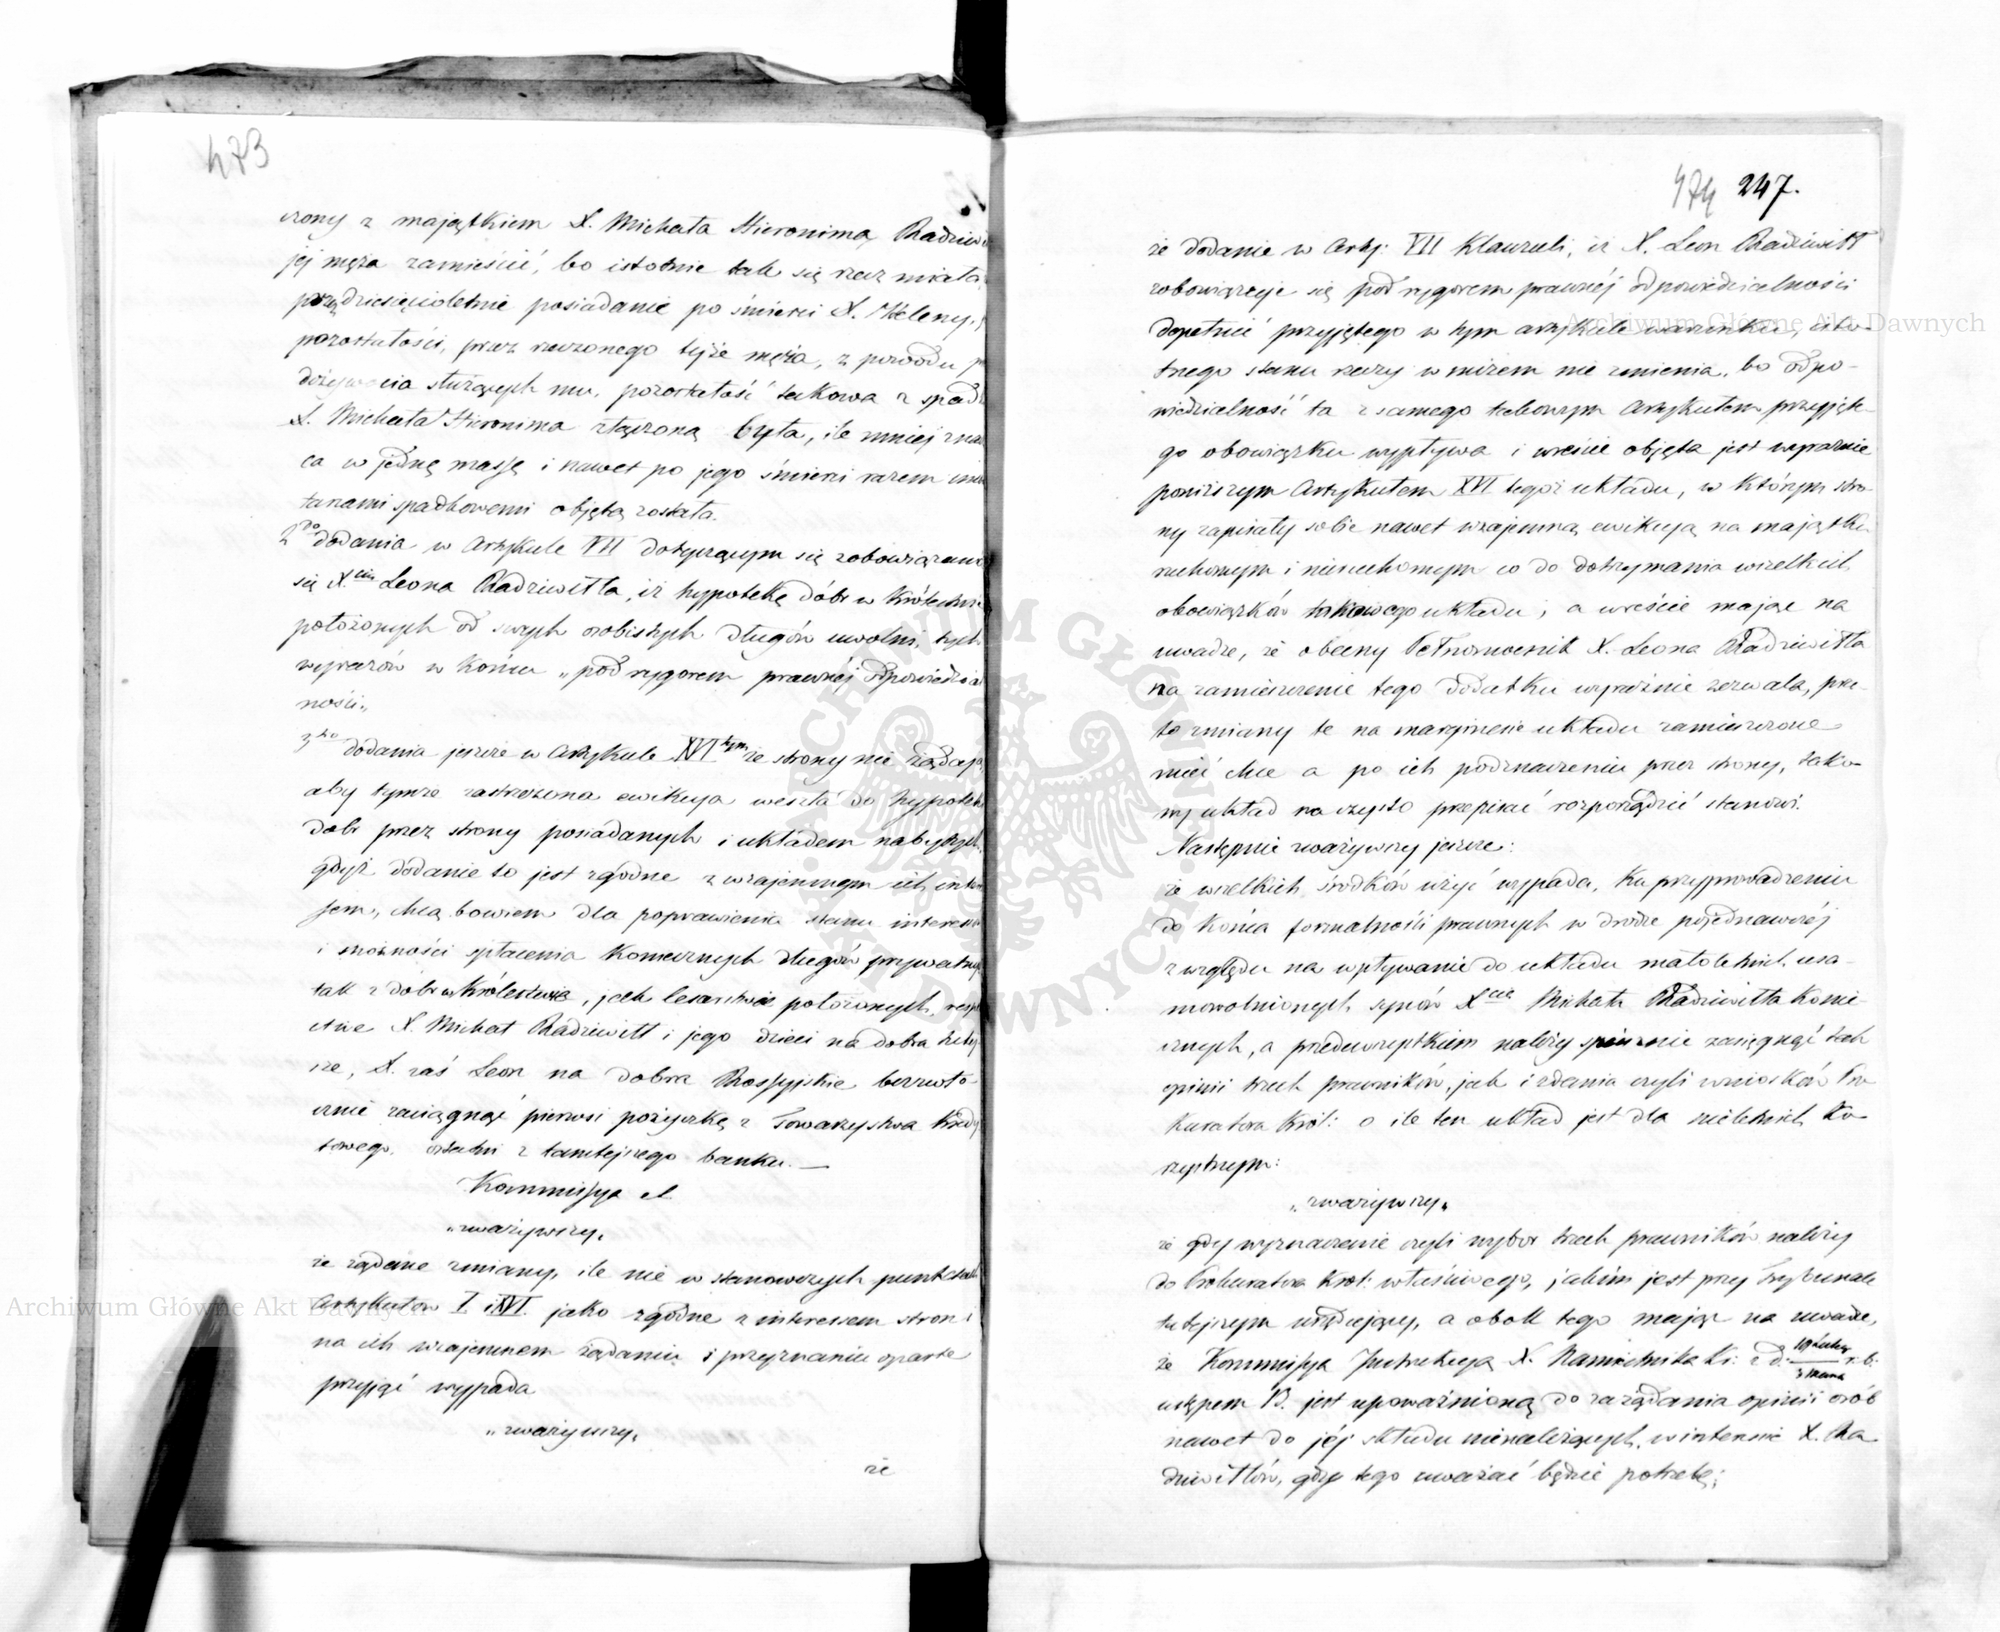 473
czony z majątkiem X. Michała Hieronima Radziw
jej męża zamieścić, bo istotnie tak się rzecz miała
dziesięcioletnie posiadanie po śmierci X. Heleny,
pozostałości, przez rzeczonego tejże męża, z powodu
dożywocia służących mu, pozostałość takowa z spad
X. Michała Hieronima złączoną była, ile mniej zna
ca w jednę massę i nawet po jego śmierci razem inwen
tarzami spadkowemi objętą została.
2do dodania w Artykule VII dotyczącym się zobowiązania
się Xcia Leona Radziwiłła, iż hypotekę dóbr w Królestwie
położonych od swych osobistych długów uwolni, tych
wyrazów w końcu „pod rygorem prawnéj odpowiedzial
ności„
3tio dodania jeszcze w Artykule XVItym że strony nie żądają,
aby tymże zastrzeżona ewikcya weszła do hypotek
dóbr przez strony posiadanych i układem nabytych,
gdyż dodanie to jest zgodne z wzajemnym ich inte
sem, chcą bowiem dla poprawienia stanu interessu
i możności spłacenia koniecznych długów prywatnych
tak z dóbr w Królestwie, jak Cesarstwie położonych, resp
ctive X. Michał Radziwiłł i jego dzieci na dobra tutej
sze, X. zaś Leon na dobra Rossyjskie bezzwło-
cznie zaciągnąć pierwsi pożyczkę z Towarzystwa Kredy
towego, ostatni z tamtejszego banku. —
Kommissya
„zważywszy„
że żądane zmiany, ile nie w stanowczych punktach
Artykułów I i XVI. jako zgodne z interessem stron i
na ich wzajemnem żądaniu i przyznaniu oparte
przyjąć wypada
„zważywszy„
że
474 247.
że dodanie w Arty: VII Klauzuli, iż X. Leon Radziwiłł
zobowiązuje się pod rygorem prawnéj odpowiedzialności
dopełnić przyjętego w tym artykule warunku, isto-
tnego stanu rzeczy w niczem nie zmienia, bo odpo-
wiedzialność ta z samego takowym Artykułem przyjęte-
go obowiązku wypływa i wreście objęta jest wyraźnie
poniższym Artykułem XVI tegoż układu, w którym stro-
ny zapisały sobie nawet wzajemną ewikcyą na majątku
ruchomym i nieruchomym co do dotrzymania wszelkich
obowiązków takowego układu; a wreście mając na
uwadze, że obecny Pełnomocnik X. Leona Radziwiłła
na zamieszczenie tego dodatku wyraźnie zezwala, prze-
to zmiany te na marginesie układu zamieszczone
mieć chce a po ich podznaczeniu przez strony, tako-
wy układ na czysto przepisać rozporządzić stanowi.
Następnie zważywszy jeszcze:
że wszelkich środków użyć wypada, ku przyprowadzeniu
do końca formalności prawnych w drodze pojednawczéj
z względu na wpływanie do układu małoletnich usa-
mowolnionych synów Xcia Michała Radziwiłła konie-
cznych, a przedewszystkiem należy spiesznie zasięgnąć tak
opinii trzech prawników, jak i zdania czyli wniosków Pro
kuratora Król: o ile ten układ jest dla nieletnich ko-
rzystnym:
„zważywszy„
że gdy wyznaczenie czyli wybór trzech prawników należy
do Prokuratora Król: właściwego, jakim jest przy Trybunale
tutejszym urzędujący, a obok tego mając na uwadze,
że Kommissya Instrukcyą X. Namiestnika Kr: z d: 19 Lutego / 3 Marca r. b.
ustępem B. jest upoważnioną do zażądania opinii osób
nawet do jéj składu nienależących, w interesie X. Ra
dziwiłłów, gdy tego uważać będzie potrzebę;
Archiwum Główne Akt Dawnych
Archiwum Główne Akt Dawnych
ARCHIWUM GŁÓWNE AKT DAWNYCH